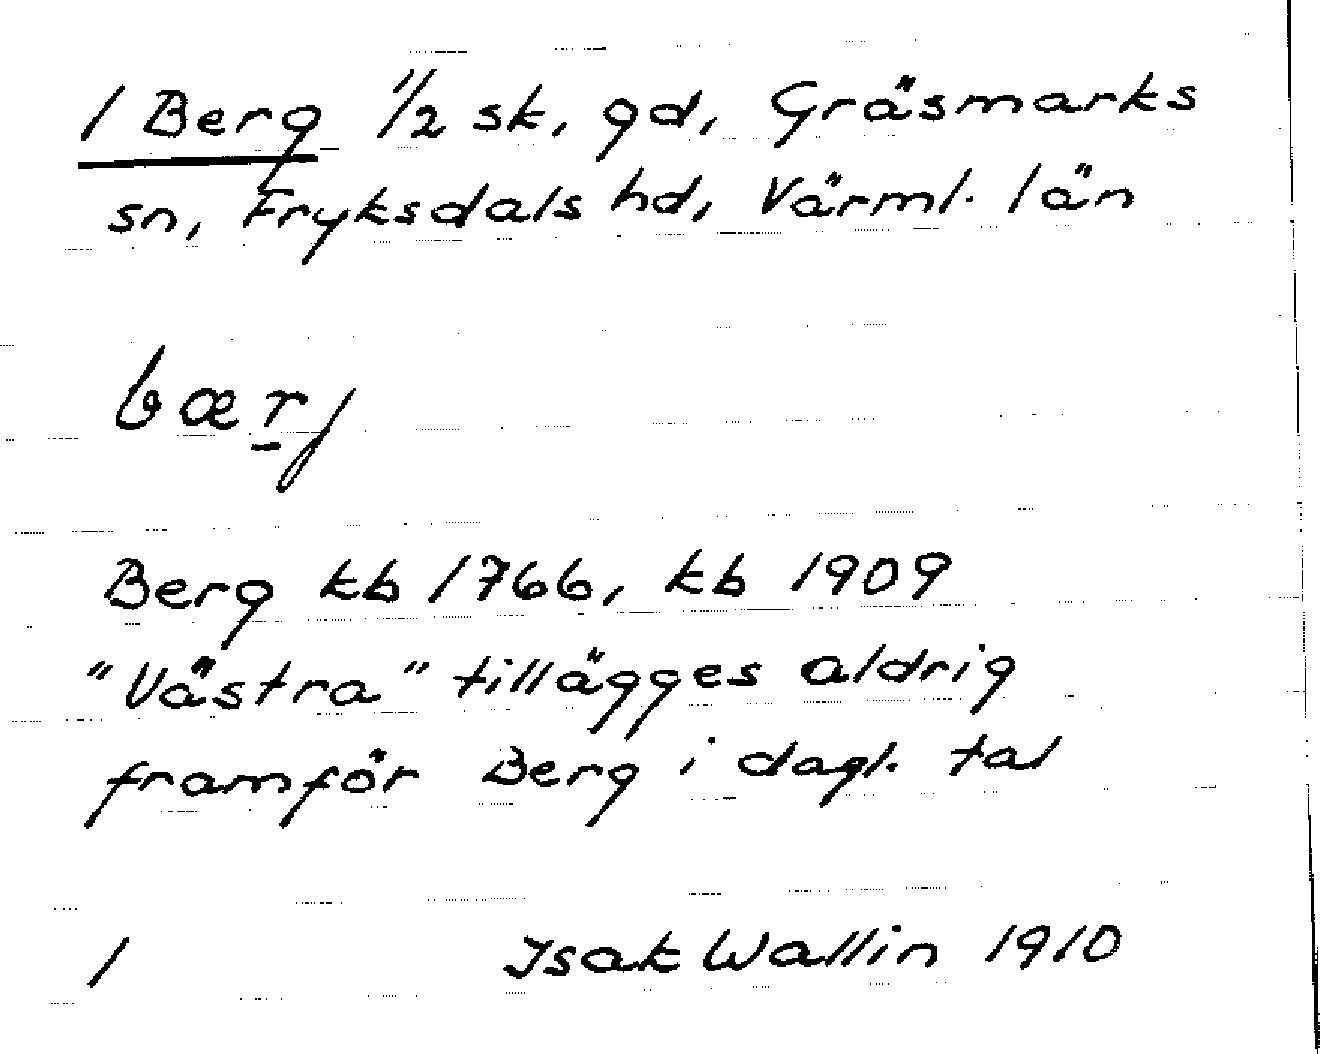 1 Berg 1/2 sk, gd, Gräsmarks
sn, Fryksdals hd, Värml. län
bærj
Berg kb 1766, kb 1909
"Västra" tillägges aldrig
framför Berg i dagl. tal
1 Isak Wallin 1910